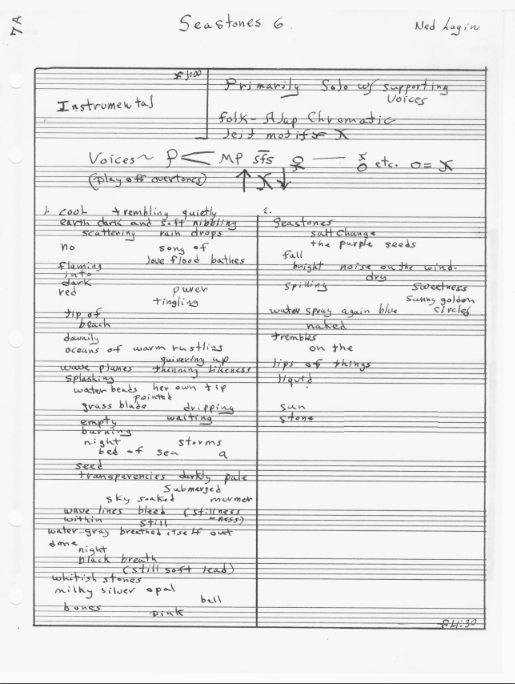 7A
Seastones 6.
Ned Lagin
Instrumental
Primarily Solo w/ supporting
voices
folk - Adap Chromatic
leit motif X
Voices~ P < MP sfs
etc. o = X
(play off overtones)
↑ X ↓
1. cool trembling quietly
earth dark and soft nibbling
scattering rain drops
no song of
love flood bathes
flaming
into
dark
red purer
tingling
tip of
beach
downily
oceans of warm rustling
quivering up
wave planes thinning likeness
splashing
water beads her own tip
pointed
grass blade dripping
empty waiting
burning
night storms
bed of sea a
seed
transparencies darkly pale
submerged
sky soaked murmer
wave lines bleed (stillness
within still -ness)
water-gray breathed itself out
done
night
black breath
(still soft lead)
whitish stones
milky silver opal
bell
bones pink
2.
Seastones
salt Change
the purple seeds
fall
bright noise on the wind-
dry
spilling sweetness
sunny golden
water spray again blue circles
naked
trembles
on the
lips of things
liquid
sun
stone
4:30